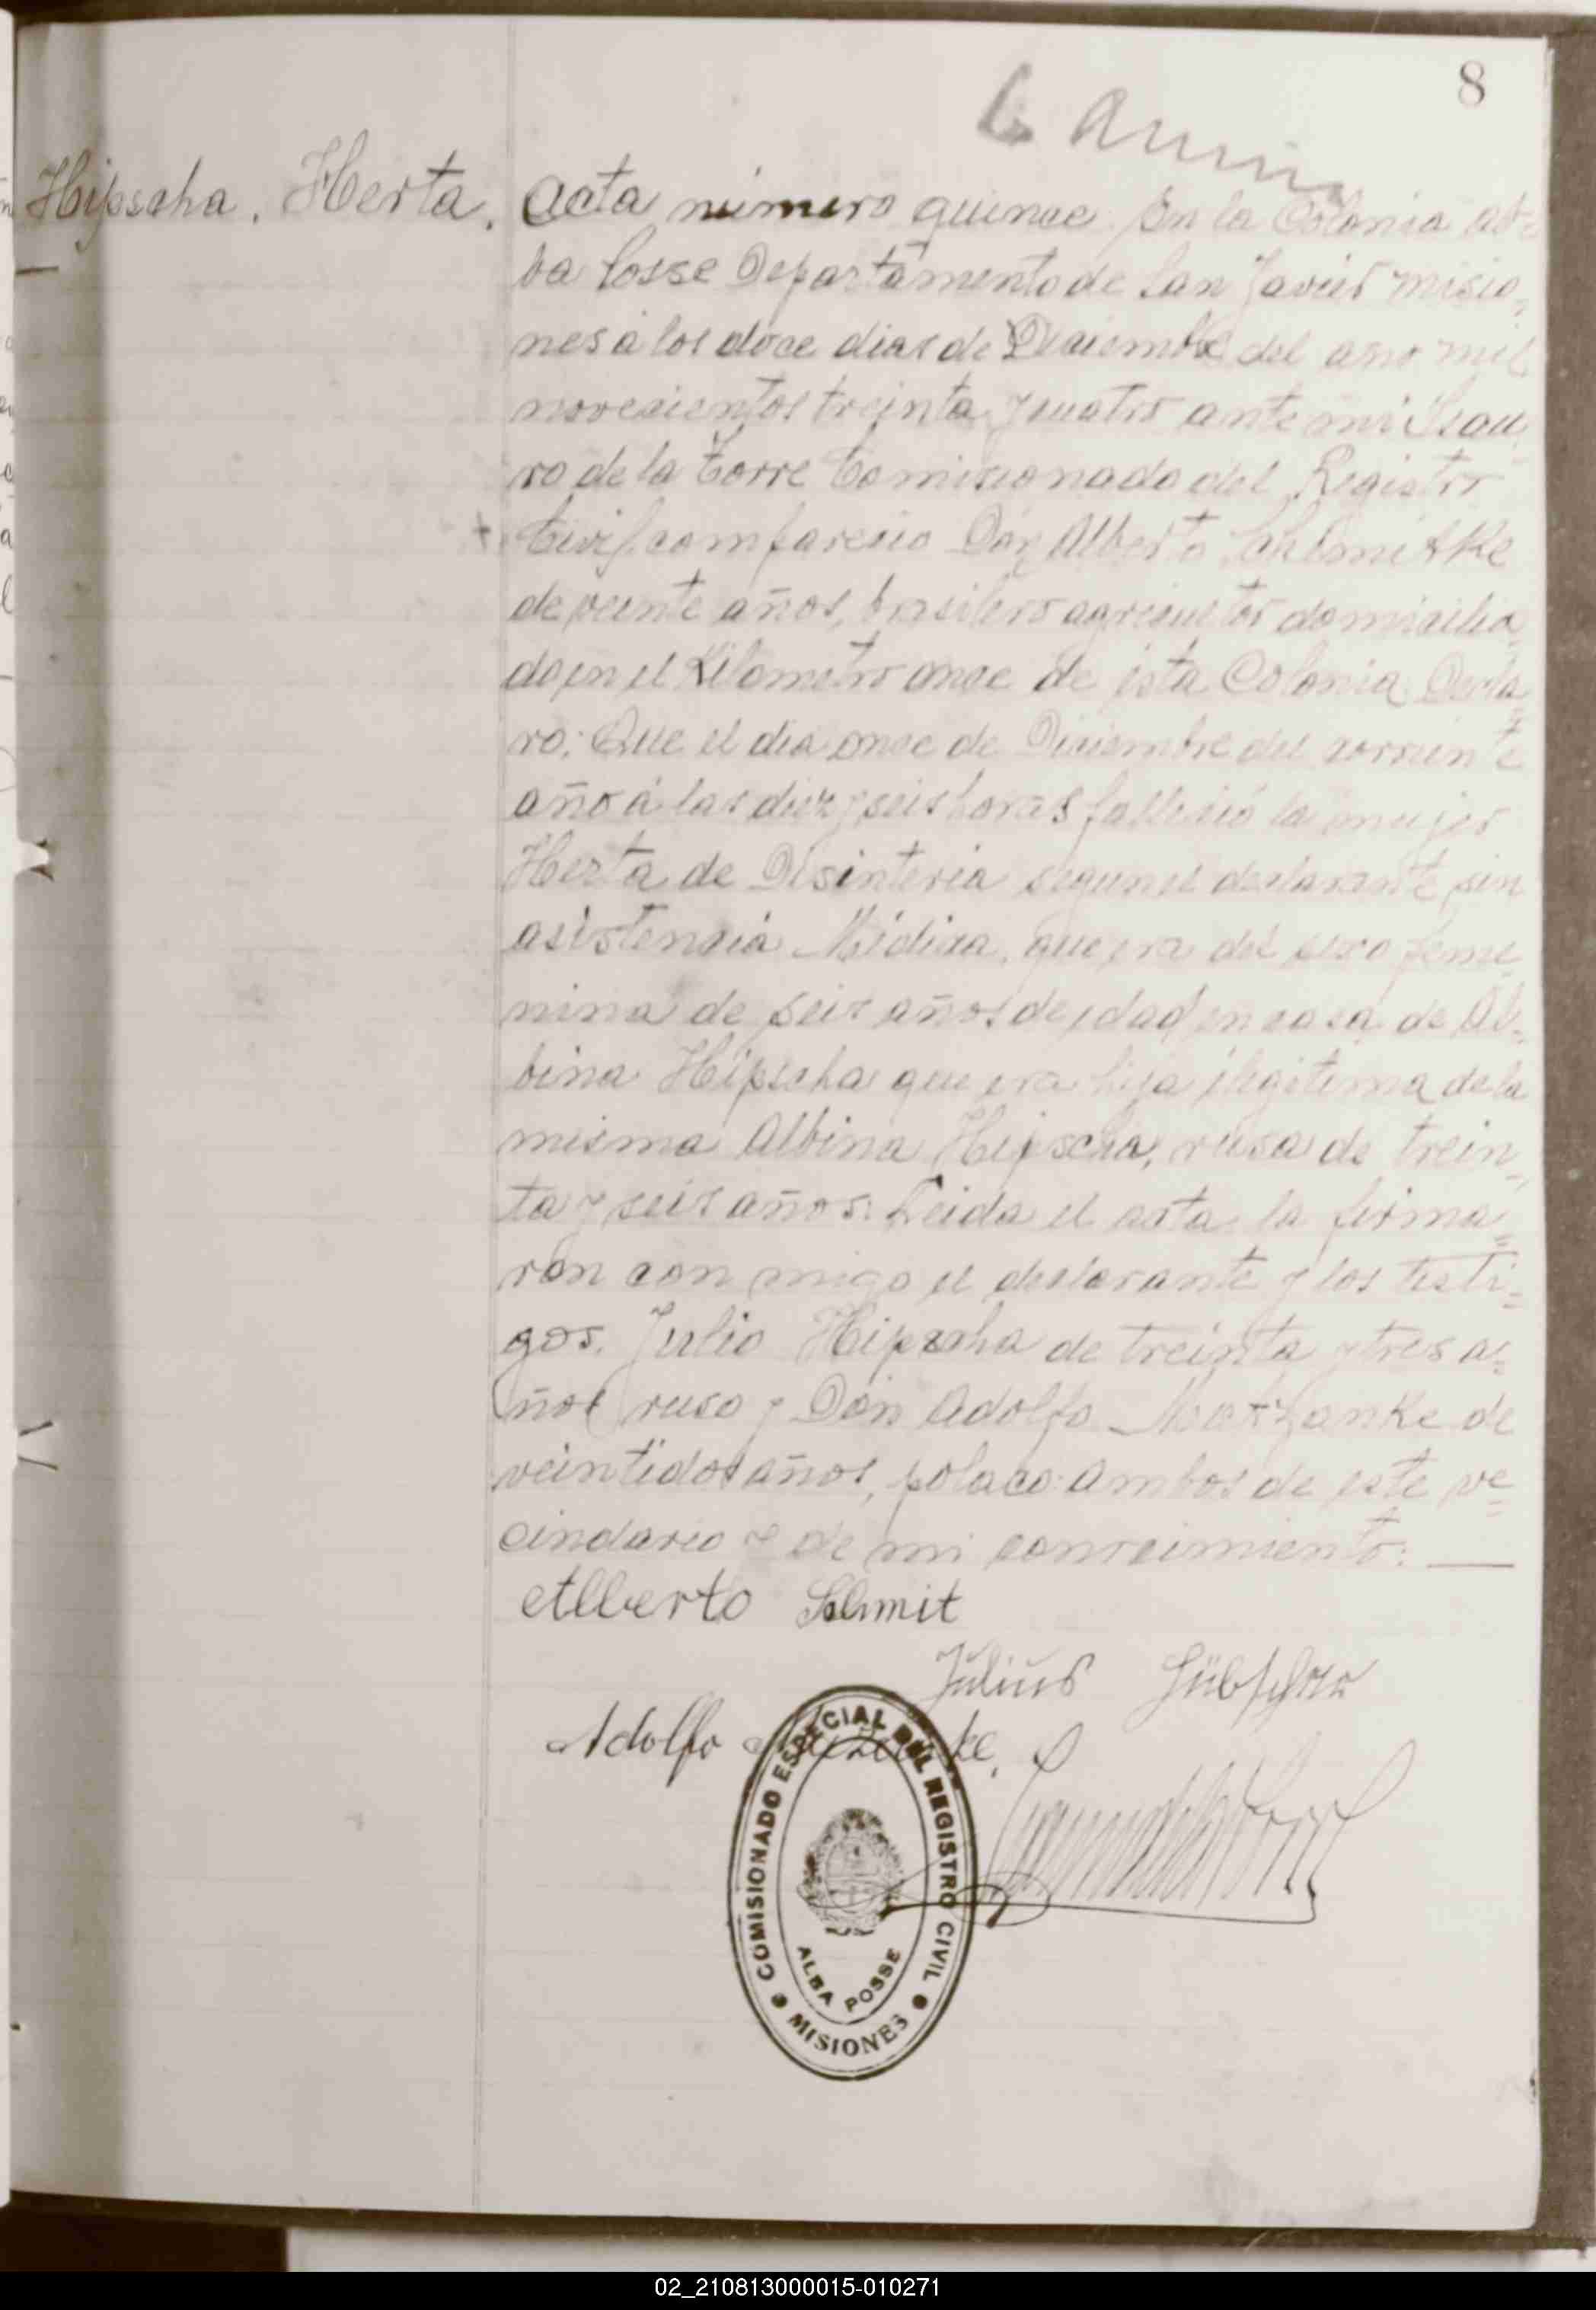 8
Hipscha, Herta.
Acta número quince. En la Colonia Al-
ba Posse Departamento de San Javier Misio-
nes á los doce dias de Diciembre del año mil
novecientos treinta y cuatro ante mi Isau-
ro de la Torre Comisionado del Registro
Civil comparecio Don Alberto
de veinte años, brasilero agricultor domicilia-
do en el Kilometro once de esta Colonia Decla-
ro: Que el dia once de Diciembre del corriente
año á las diez y seis horas falleció la mujer
Herta de Disinteria segun el declarante sin
asistencia Médica, que era del sexo feme-
nina de seis años de edad en casa de Al-
bina Hipscha que era hija ilegitima de la
misma Albina Hipscha, rusa de trein-
ta y seis años: Leida el acta la firma-
ron con migo el declarante y los testi-
gos. Julio Hipscha de treinta y tres a-
ños ruso y Don Adolfo de
veintidos años, polaco: Ambos de este ve-
cindario y de mi conocimiento:
Alberto Schmit
Julius Hübscher
Adolfo
COMISIONADO ESPECIAL DEL REGISTRO CIVIL
ALBA POSSE
MISIONES
02_210813000015-010271